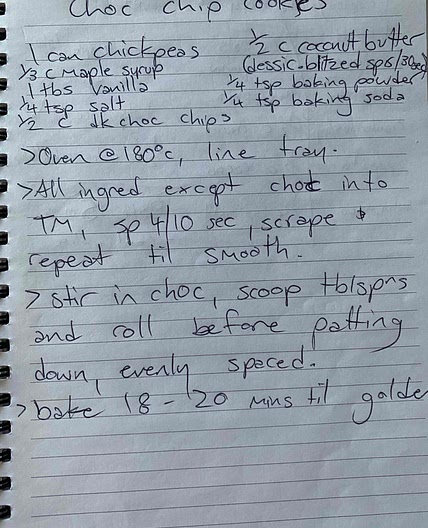 Choc chip cookies
1 can chickpeas
1/3 c maple syrup
1 tbs vanilla
1/4 tsp salt
1/2 c dk choc chips
1/2 c coconut butter
(dessic-blitzed sp8/30sec)
1/4 tsp baking powder
1/4 tsp baking soda
>Oven @ 180°c, line tray.
>All ingred except choc into
TM, sp 4/10 sec, scrape &
repeat til smooth.
> stir in choc, scoop tblspns
and roll before patting
down, evenly spaced.
> bake 18 - 20 mins til golde